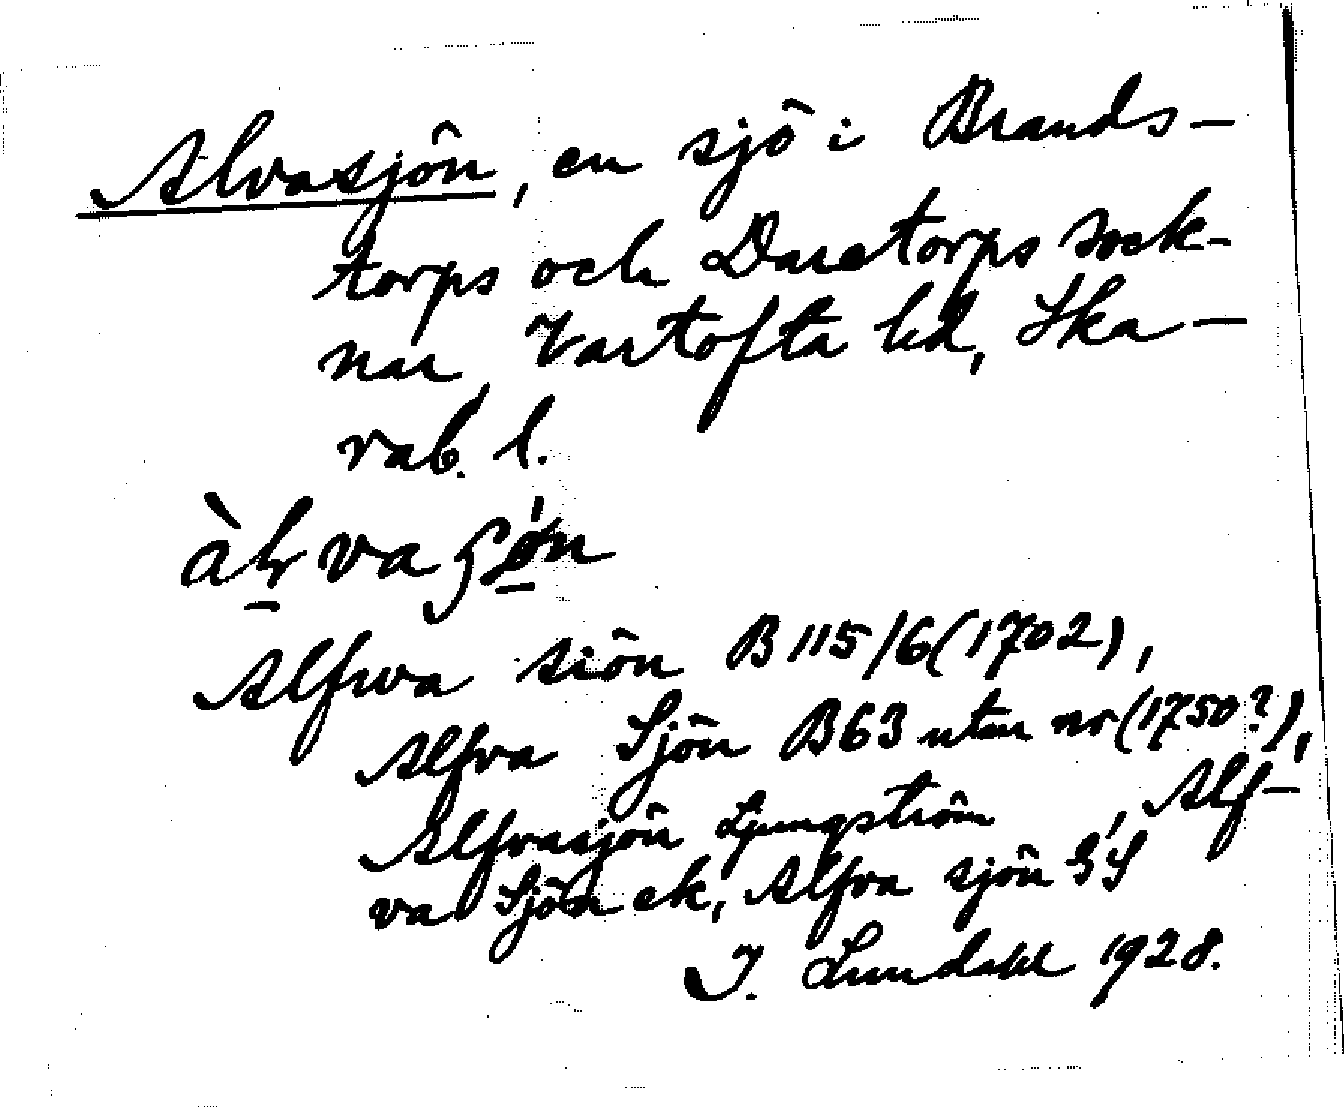 Alvasjön, en sjö i Brands-
torps och Daretorps sock-
nar, Vartofta hd, Ska-
rab. l.
Alfwa siön B 115/6 (1702),
Alfva Sjön B63 utan nr (1750?),
Alfvasjön Ljungström, Alf-
va Sjön ek, Alfva sjön
I. Lundahl 1928.